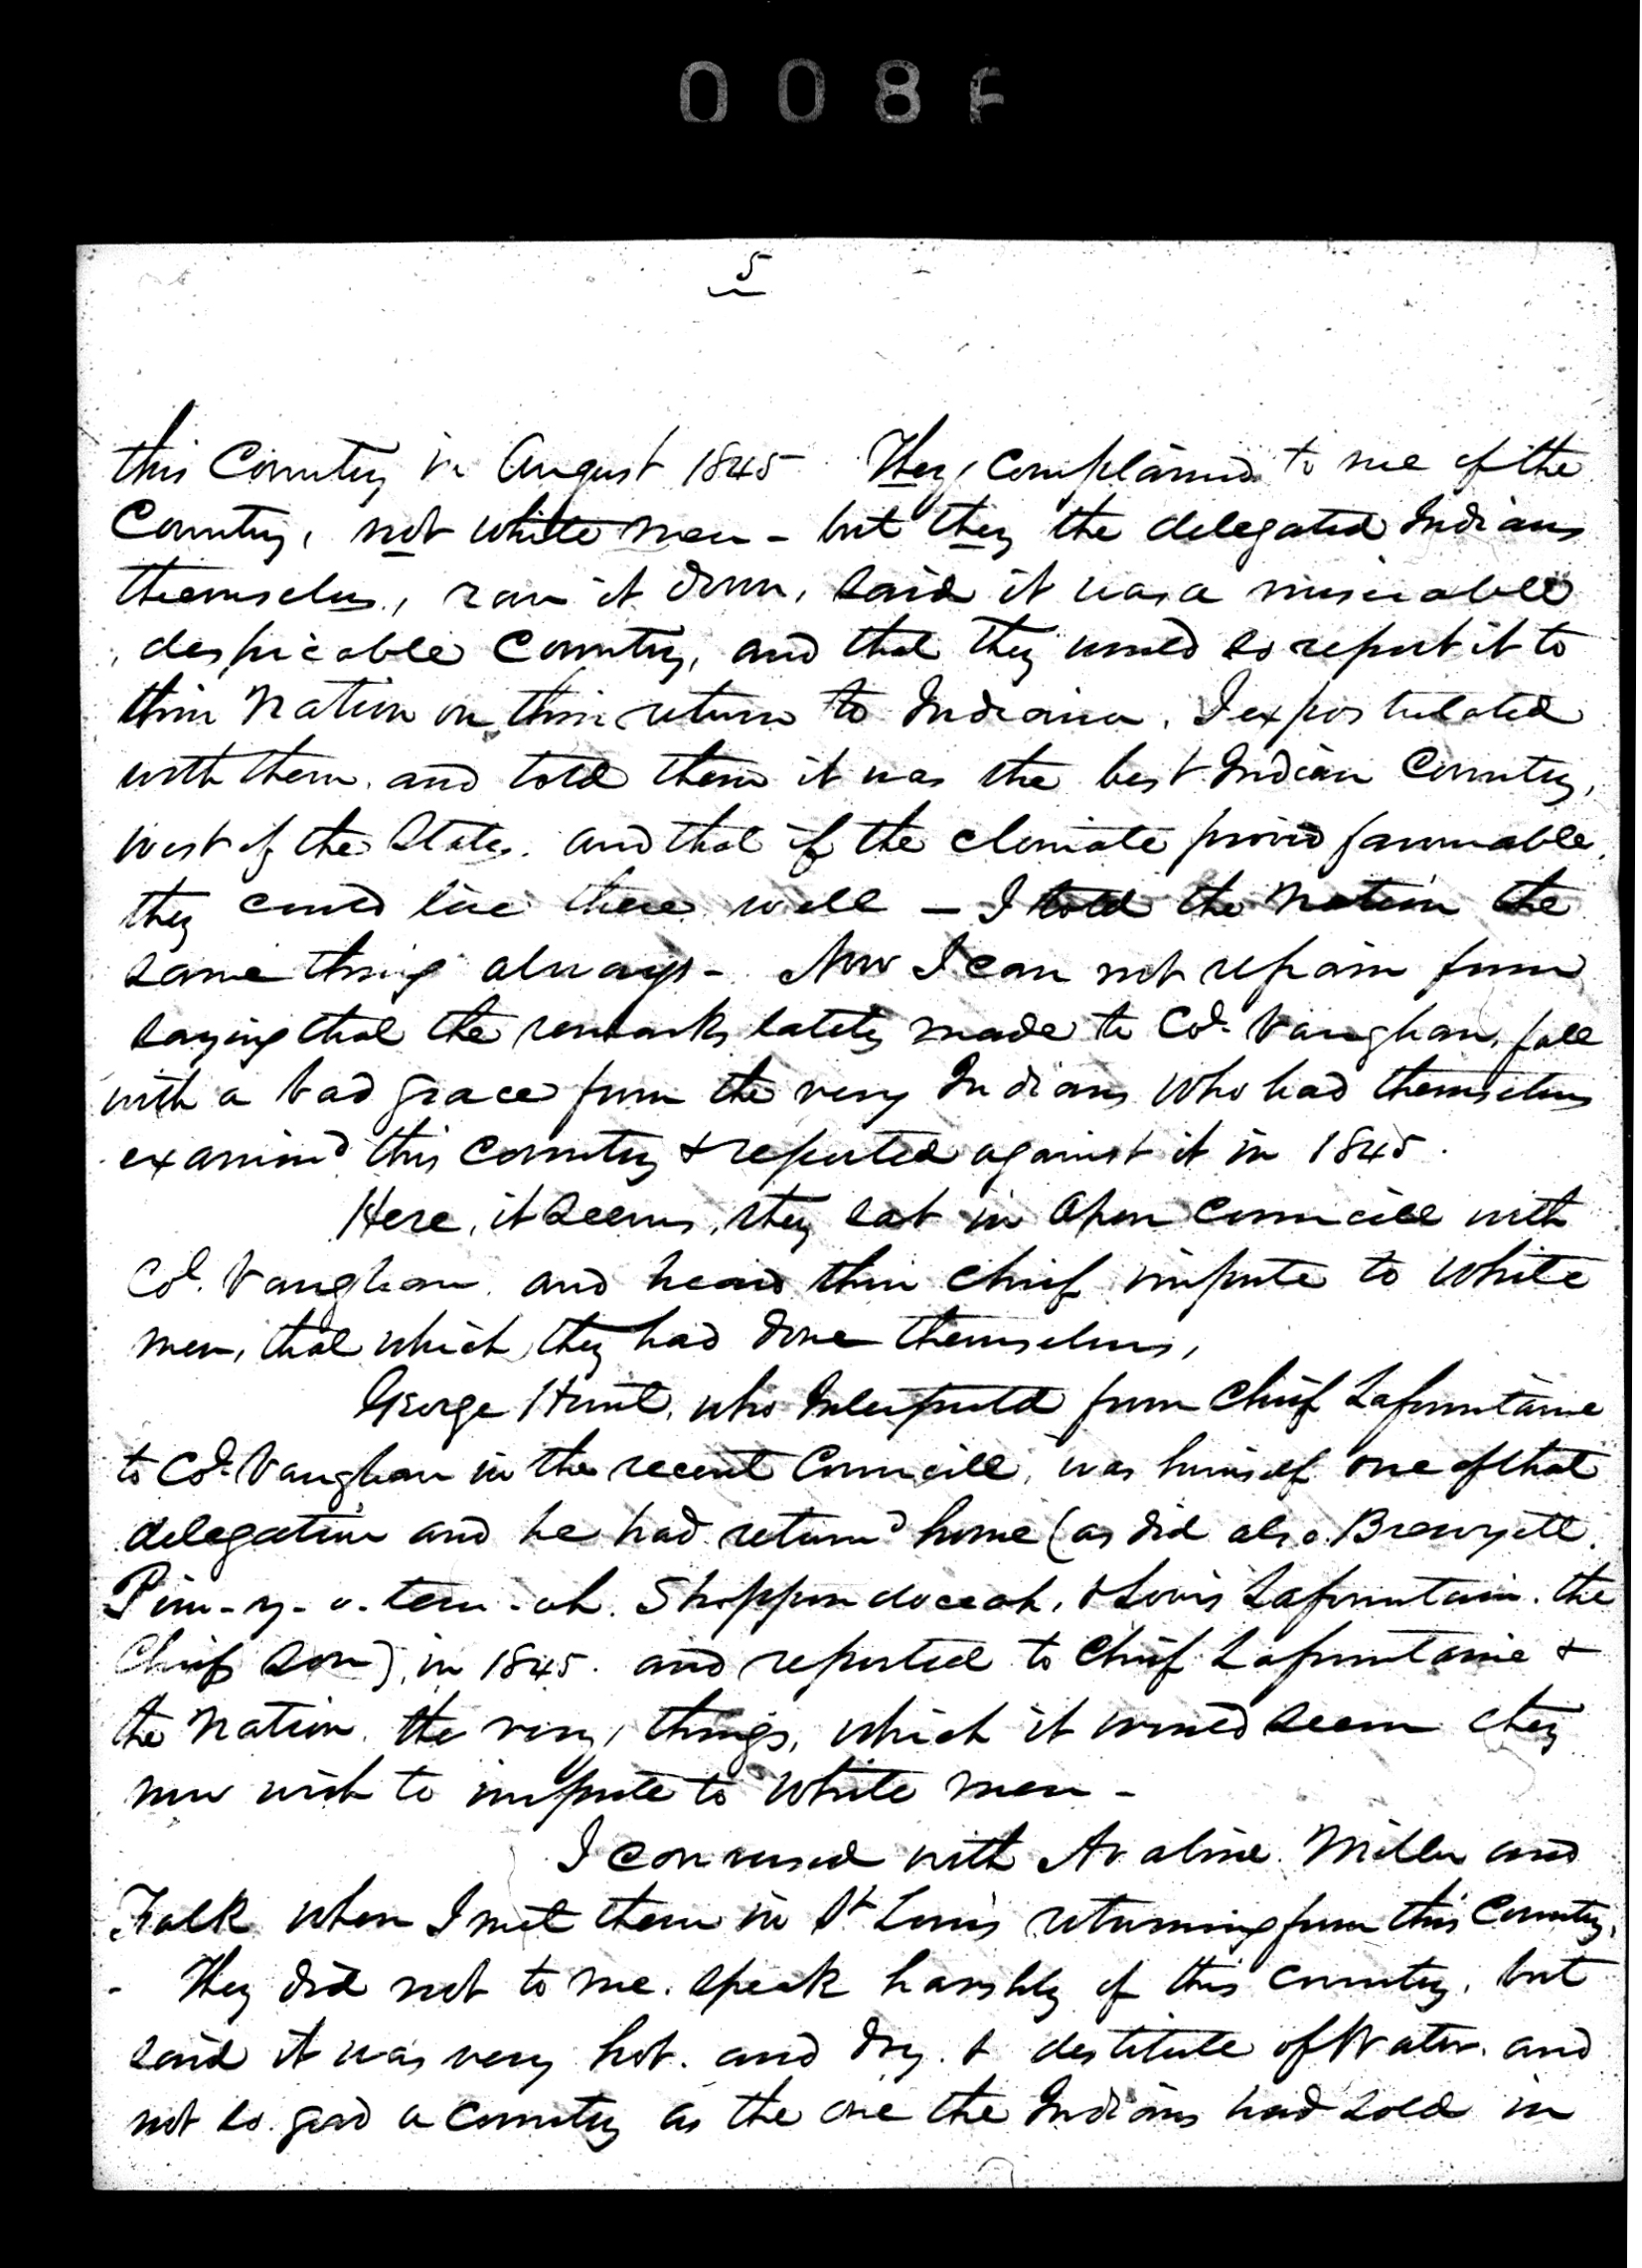 008
5
this Country in August 1845 They, complained to me of the
Country, not white men - but they the delegated Indians
themselves, ran it down, said it was a miserable
despicable Country, and that they would so report it to
their Nation on their return to Indiana. I expostulated
with them. and told them it was the best Indian Country,
west of the States. and that if the climate proved favourable,
they could live there well - I told the Nation the
same thing always - Now I can not refrain from
saying that the remarks lately made to Col. Vaughan, fall
with a bad grace from the very Indians who had themselves
examined this Country & reported against it in 1845.
Here, it seems, they sat in open Councill with
Col. Vaughan and heard their chief impute to White
men, that which they had done themselves,
George Hunt, who Interpreted from Chief Lafountaine
to Col. Vaughan in the recent Councill, was himself one of that
delegation and he had returned home (as did also Brouyett.
Pim-y-o-tem-ah. Shoppondoceah, & Louis Lafountain. the
Chiefs son), in 1845. and reported to Chief Lafountaine &
the Nation. the very, things, which it would seem they
now wish to impute to White men -
I conversed with Avaline. Miller and
Falk when I met them in St Louis returning from this Country.
- They did not to me. speak harshly of this Country, but
said it was very hot. and dry. & destitute of Water. and
not so good a Country as the one the Indians had sold in